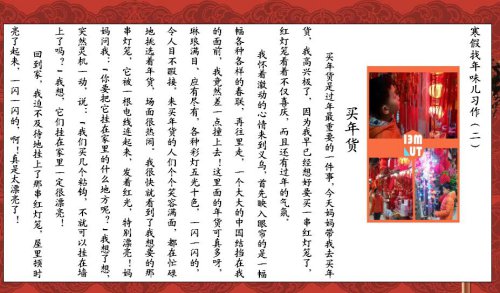 寒假找年味儿习作（二）
买年货
买年货是过年最重要的一件事，今天妈妈带我去买年
货，我高兴极了，因为我早已经想好要买一串红灯笼了，
红灯笼看着不仅喜庆，而且还有过年的气氛。
我怀着激动的心情来到义乌，首先映入眼帘的是一幅
幅各种各样的春联，再往里走，一个大大的中国结挡在我
的面前，我竟然差一点撞上去！这里面的年货可真多呀，
琳琅满目，应有尽有，各种彩灯五光十色，一闪一闪的，
令人目不暇接，来买年货的人们个个笑容满面，都在忙碌
地挑选着年货，场面很热闹。我很快就看到了我想要的那
串灯笼，它被一根电线连起来，发着红光，特别漂亮！妈
妈问我：“你要把它挂在家里的什么地方呢？”我想了想，
突然灵机一动，说：“我们买几个粘钩，不就可以挂在墙
上了吗？”我想，它们挂在家里一定很漂亮！
回到家，我迫不及待地挂上了那串红灯笼，屋里顿时
亮了起来，一闪一闪的，啊！真是太漂亮了！